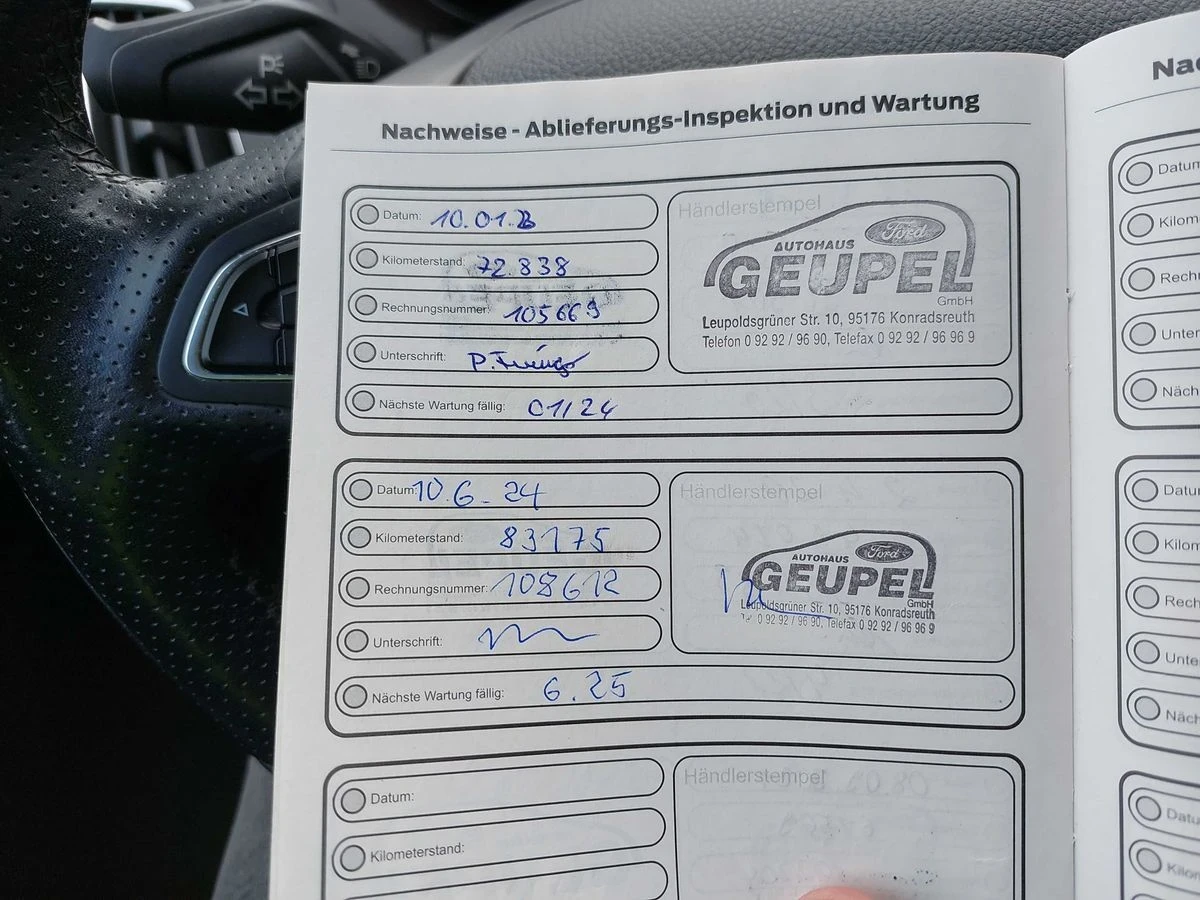 Nachweise - Ablieferungs-Inspektion und Wartung
Datum: 10.01.23
Kilometerstand: 72 838
Rechnungsnummer: 105669
Unterschrift:
Nächste Wartung fällig: 01/24
Händlerstempel
AUTOHAUS Ford
GEUPEL
GmbH
Leupoldsgrüner Str. 10, 95176 Konradsreuth
Telefon 0 92 92 / 96 90, Telefax 0 92 92 / 96 96 9
Datum: 10.6.24
Kilometerstand: 83175
Rechnungsnummer: 108612
Unterschrift:
Nächste Wartung fällig: 6.25
Händlerstempel
AUTOHAUS Ford
GEUPEL
GmbH
Leupoldsgrüner Str. 10, 95176 Konradsreuth
Tel. 0 92 92 / 96 90, Telefax 0 92 92 / 96 96 9
Datum:
Kilometerstand:
Händlerstempel